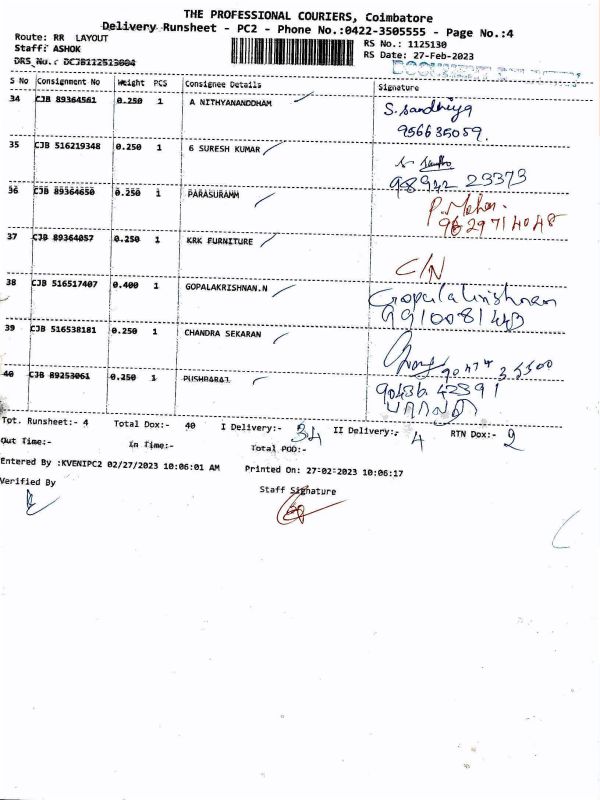 THE PROFESSIONAL COURIERS, Coimbatore
Delivery Runsheet - PC2 - Phone No.:0422-3505555 - Page No.:4
Route: RR LAYOUT
RS No.: 1125130
Staff: ASHOK
RS Date: 27-Feb-2023
DRS No.: DCJB112513004
S No Consignment No Weight PCS Consignee Details Signature
34 CJB 89364561 0.250 1 A NITHYANANDDHAM S. Sandhiya
956635059.
35 CJB 516219348 0.250 1 6 SURESH KUMAR
98942 23373
36 CJB 89364650 0.250 1 PARASURAMM P. Mohan.
9629714048
37 CJB 89364057 0.250 1 KRK FURNITURE
C/N
38 CJB 516517407 0.400 1 GOPALAKRISHNAN.N Gopalakrishnan
39 CJB 516538181 0.250 1 CHANDRA SEKARAN
40 CJB 89253061 0.250 1 PUSHPARAJ
90436 42391
Tot. Runsheet:- 4 Total Dox:- 40 I Delivery:- 34 II Delivery:- 4 RTN Dox:- 2
Out Time:- In Time:- Total POD:-
Entered By :KVENIPC2 02/27/2023 10:06:01 AM Printed On: 27-02-2023 10:06:17
Verified By Staff Signature